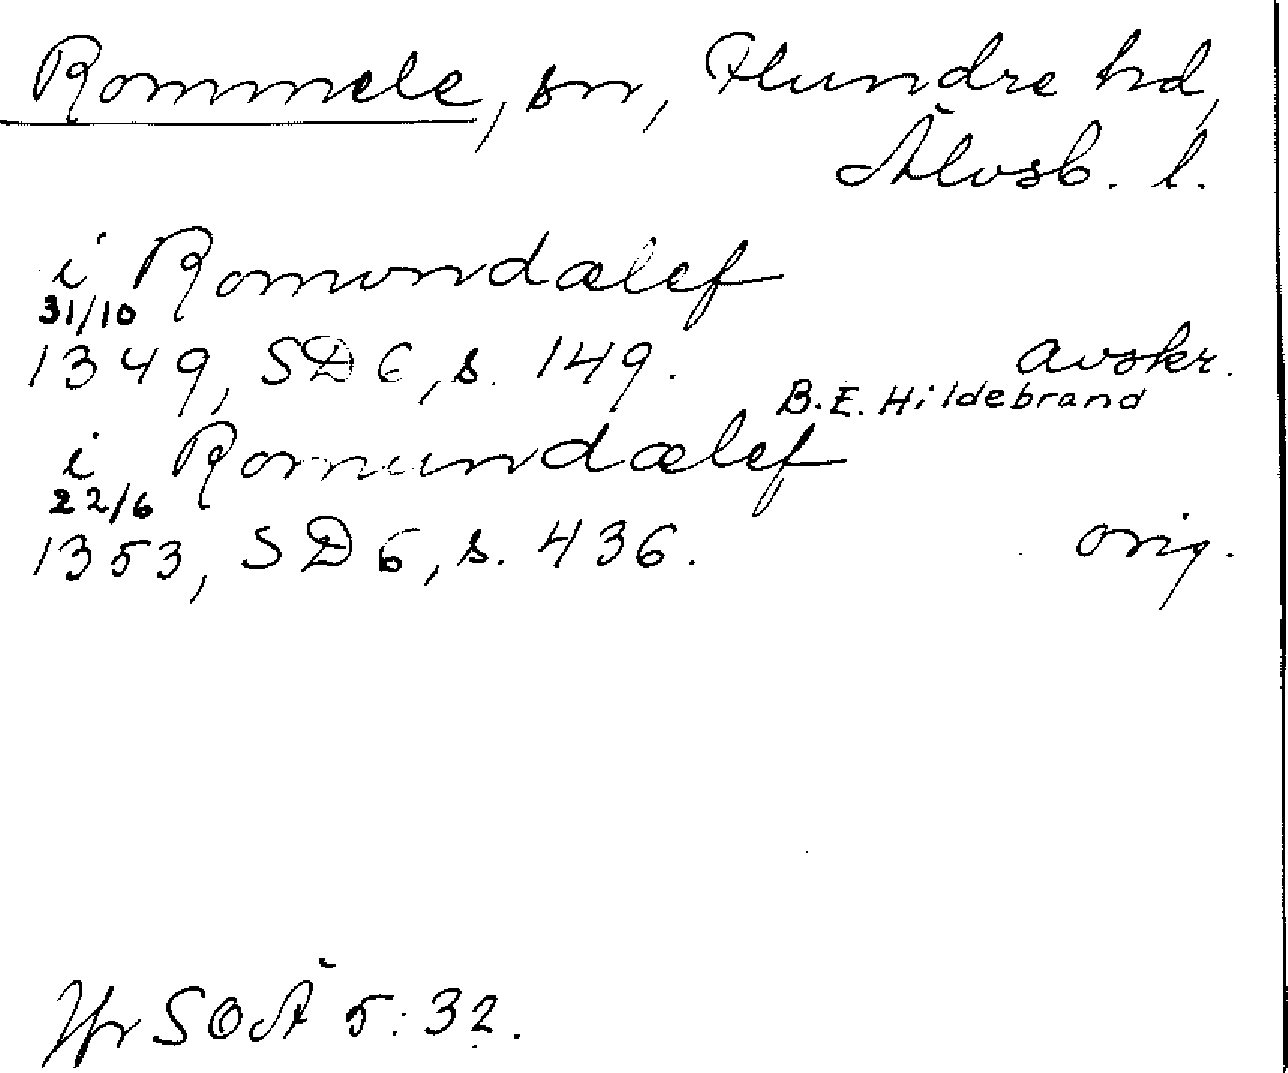 Rommele, sn, Flundre hd,
Älvsb. l.
i Romondælef
31/10
1349, SD 6, s. 149. avskr.
B. E. Hildebrand
i Romundælef
22/6
1353, SD 6, s. 436. orig.
Jfr SOÄ 5: 32.